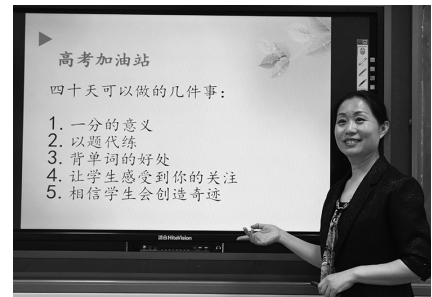 高考加油站
四十天可以做的几件事：
1. 一分的意义
2. 以题代练
3. 背单词的好处
4. 让学生感受到你的关注
5. 相信学生会创造奇迹
鸿合HiteVision